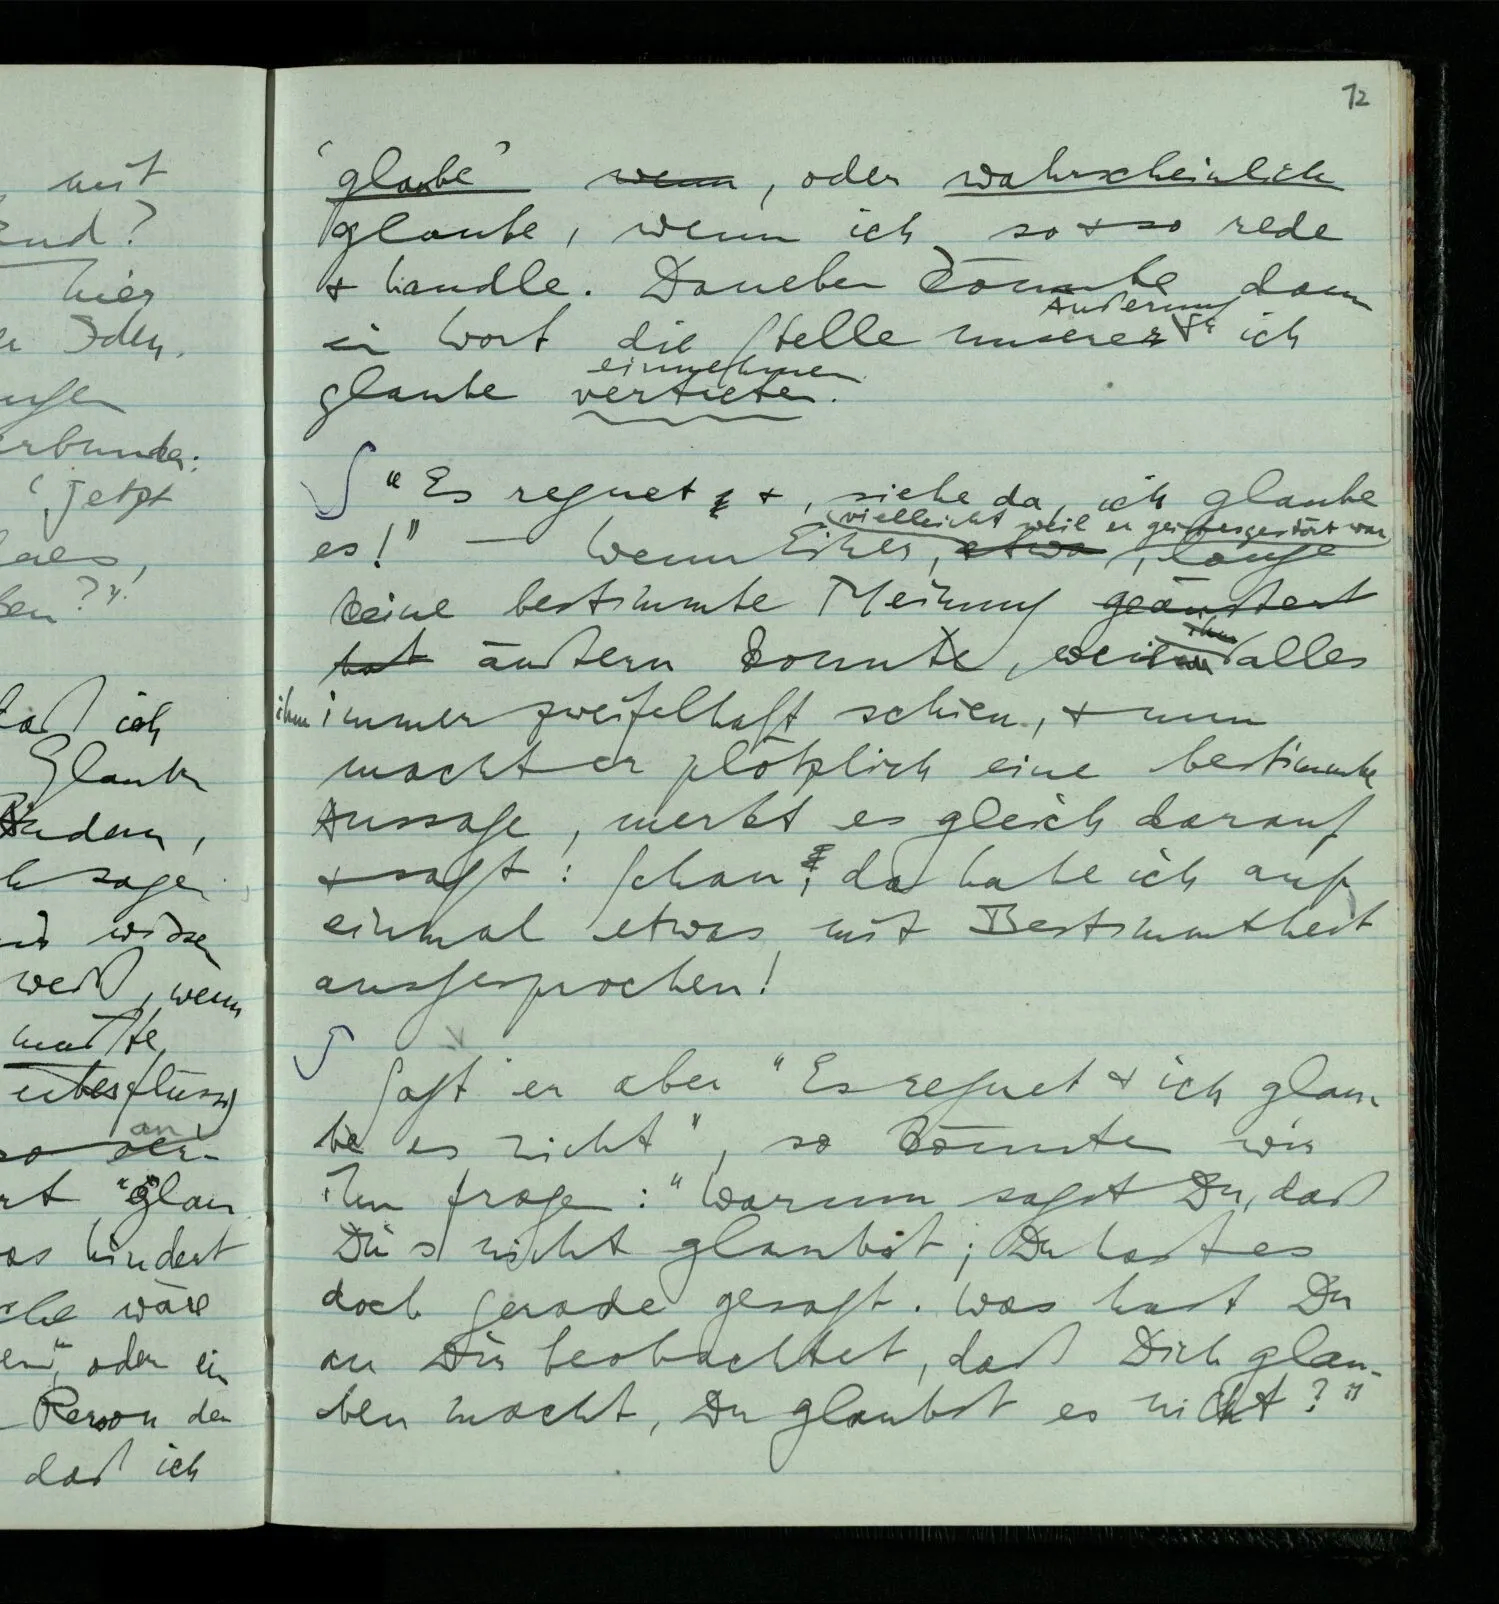 mit
end?
hier
Iden.
erbunden:
'jetzt
ben?".
daß ich
Glauben
Andern,
sagen
wissen
weiß, wenn
mußte,
überflüssig
an
so ver-
rt "glau
as hindert
che wäre
en", oder ein
Person den
daß ich
12
'glaube' wenn, oder wahrscheinlich
glaube, wenn ich so + so rede
+ handle. Daneben könnte dann
Äußerung
ein Wort die Stelle unserer ich
einnehmen
glaube vertreten.
∫ "Es regnet +, siehe da, ich glaube
(vielleicht weil er geistesgestört war)
es!" — Wenn Einer, etwa, lange
keine bestimmte Meinung geäußert
ihm
hat äußern konnte, weil alles
ihm immer zweifelhaft schien, + nun
macht er plötzlich eine bestimmte
Aussage, merkt es gleich darauf
+ sagt: Schau, da habe ich auf
einmal etwas mit Bestimmtheit
ausgesprochen!
∫
Sagt er aber "Es regnet + ich glau
be es nicht", so könnten wir
ihn fragen: "Warum sagst Du, daß
Du's nicht glaubst; Du hast es
doch gerade gesagt. Was hast Du
an Dir beobachtet, daß Dich glau-
ben macht, Du glaubst es nicht?"